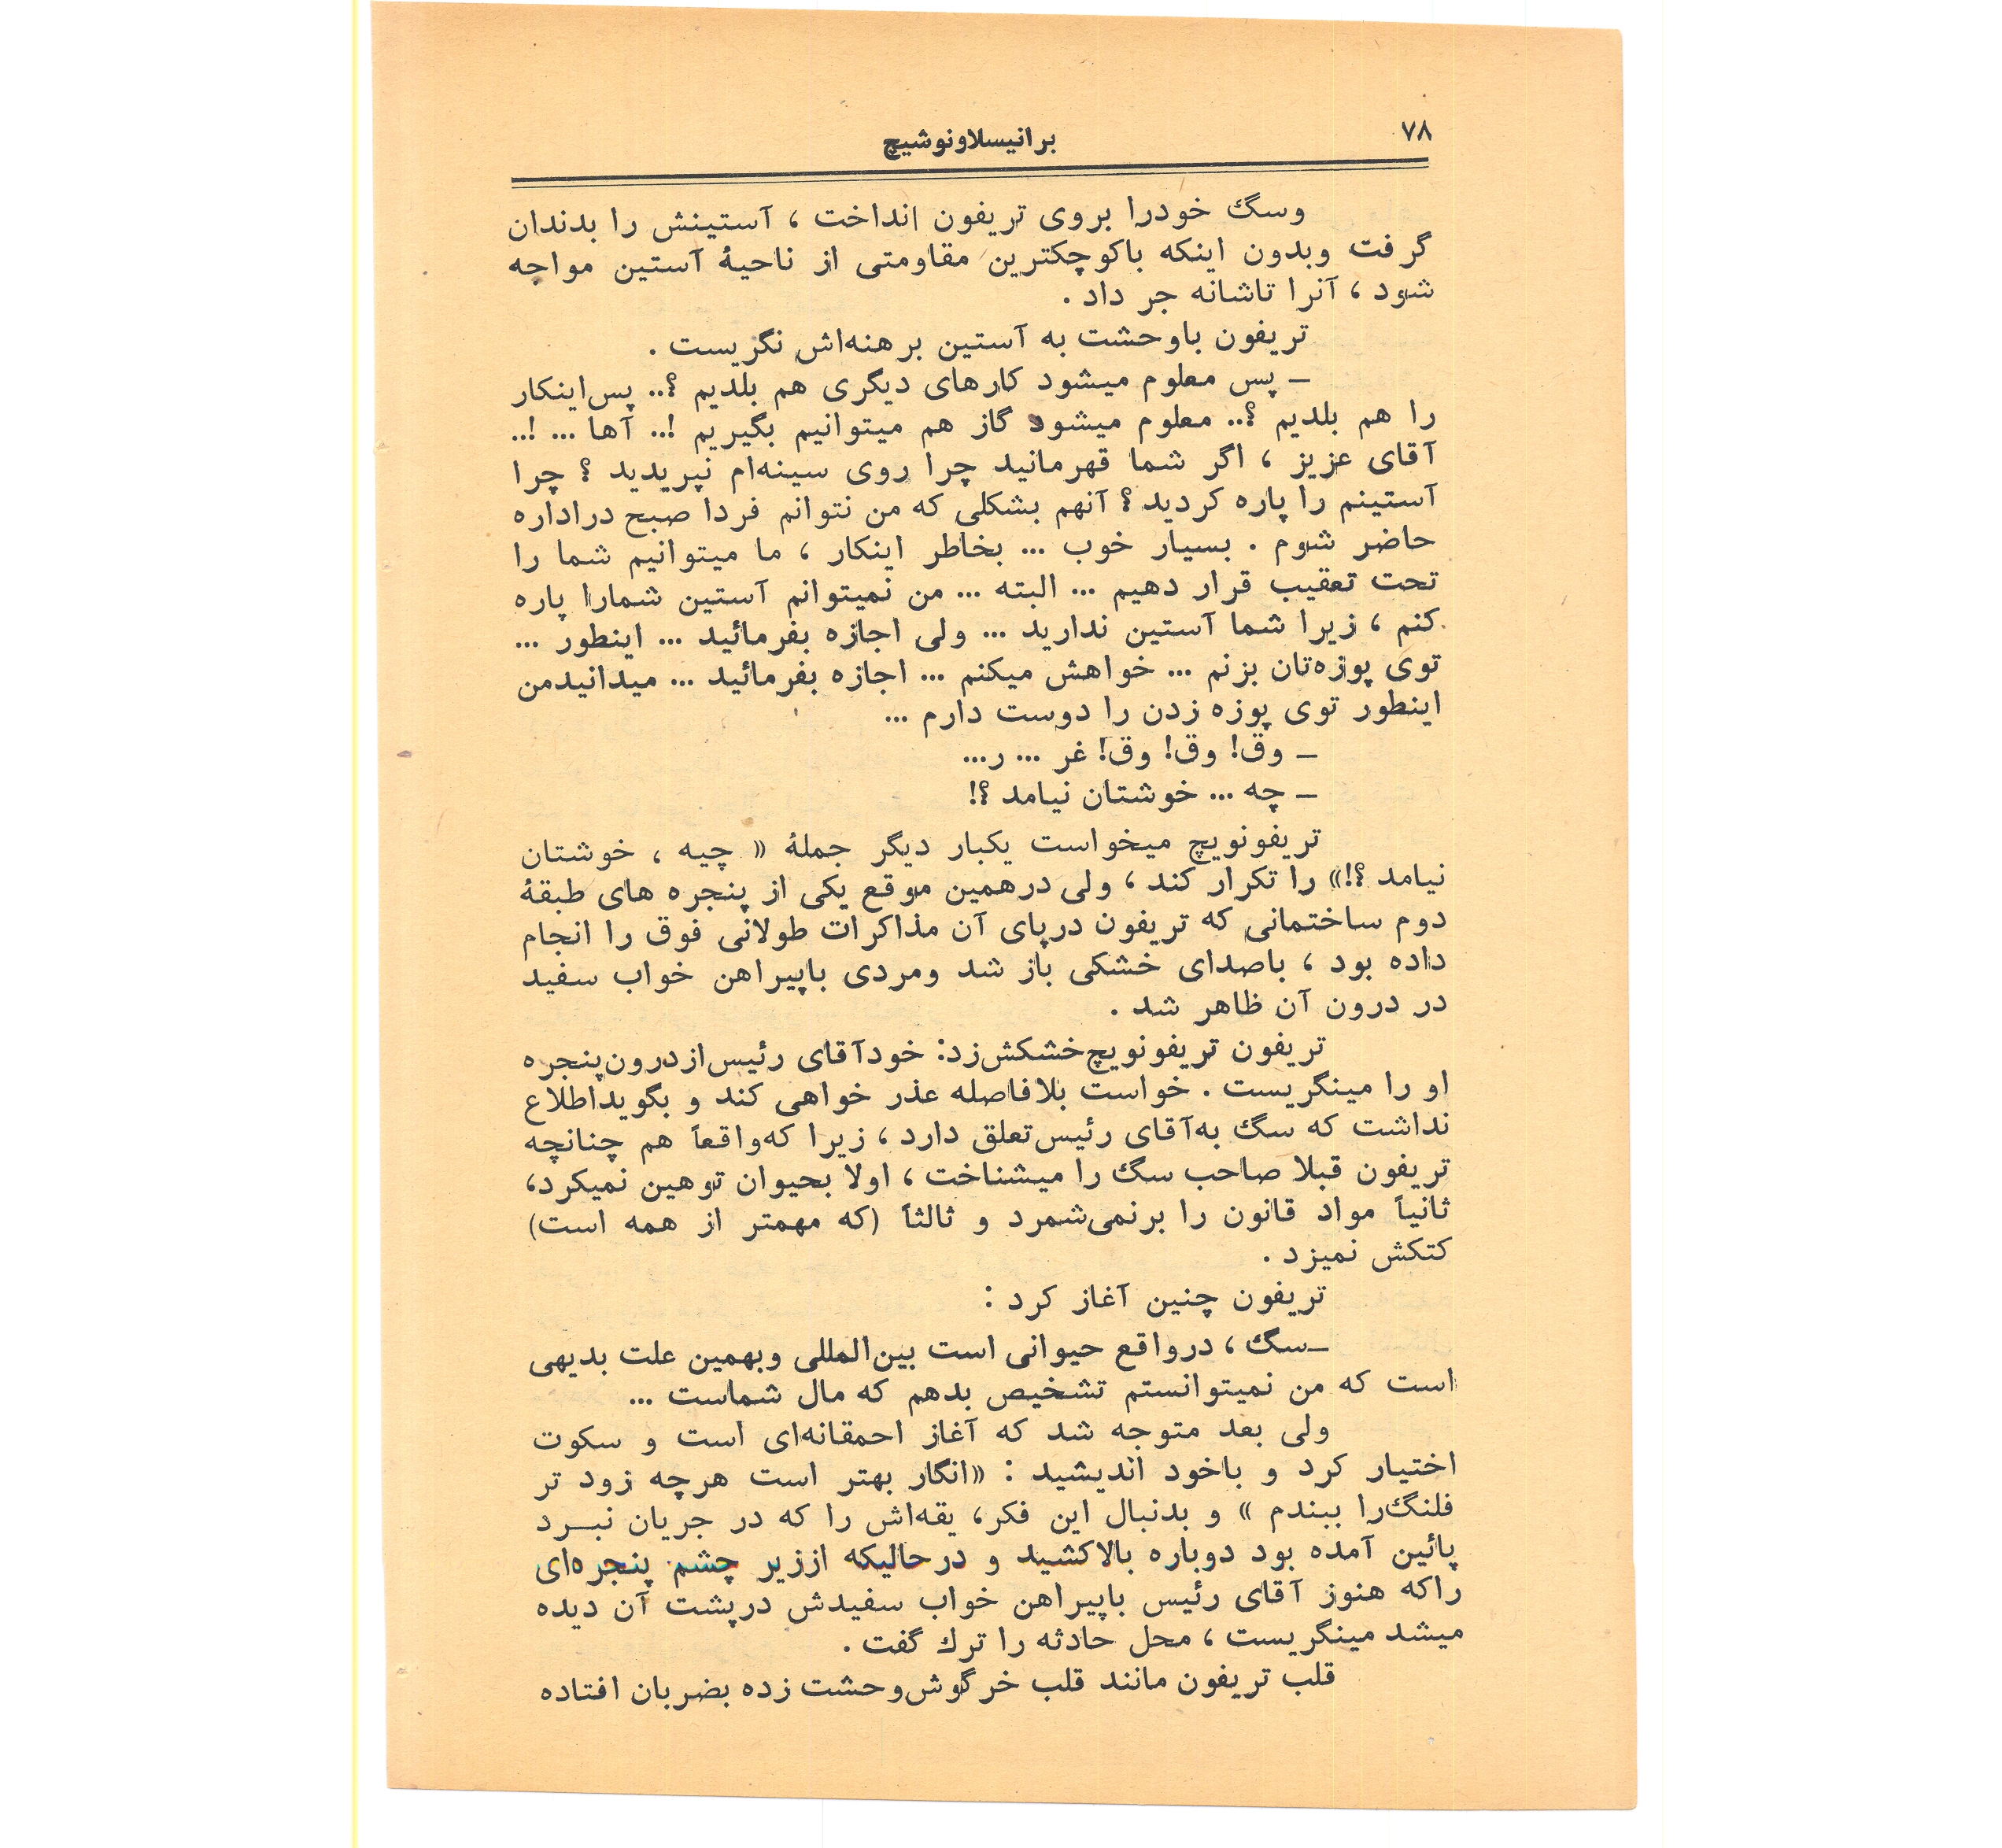 ۷۸
برانیسلاونوشیچ
وسگ خودرا بروی تریفون انداخت ، آستینش را بدندان
گرفت وبدون اینکه باکوچکترین مقاومتی از ناحیهٔ آستین مواجه
شود ، آنرا تاشانه جر داد .
تریفون باوحشت به آستین برهنه‌اش نگریست .
ـ پس معلوم میشود کارهای دیگری هم بلدیم ؟.. پس‌اینکار
را هم بلدیم ؟.. معلوم میشود گاز هم میتوانیم بگیریم !.. آها ... !..
آقای عزیز ، اگر شما قهرمانید چرا روی سینه‌ام نپریدید ؟ چرا
آستینم را پاره کردید ؟ آنهم بشکلی که من نتوانم فردا صبح دراداره
حاضر شوم . بسیار خوب ... بخاطر اینکار ، ما میتوانیم شما را
تحت تعقیب قرار دهیم ... البته ... من نمیتوانم آستین شمارا پاره
کنم ، زیرا شما آستین ندارید ... ولی اجازه بفرمائید ... اینطور ...
توی پوزه‌تان بزنم ... خواهش میکنم ... اجازه بفرمائید ... میدانیدمن
اینطور توی پوزه زدن را دوست دارم ...
ـ وق! وق! وق! غر ... ر...
ـ چه ... خوشتان نیامد ؟!
تریفونویچ میخواست یکبار دیگر جملهٔ « چیه ، خوشتان
نیامد ؟!» را تکرار کند ، ولی درهمین موقع یکی از پنجره های طبقهٔ
دوم ساختمانی که تریفون درپای آن مذاکرات طولانی فوق را انجام
داده بود ، باصدای خشکی باز شد ومردی باپیراهن خواب سفید
در درون آن ظاهر شد .
تریفون تریفونویچ‌خشکش‌زد: خودآقای رئیس‌ازدرون‌پنجره
او را مینگریست . خواست بلافاصله عذر خواهی کند و بگویداطلاع
نداشت که سگ به‌آقای رئیس‌تعلق دارد ، زیرا که‌واقعاً هم چنانچه
تریفون قبلا صاحب سگ را میشناخت ، اولا بحیوان توهین نمیکرد،
ثانیاً مواد قانون را برنمی‌شمرد و ثالثاً (که مهمتر از همه است)
کتکش نمیزد .
تریفون چنین آغاز کرد :
ـسگ ، درواقع حیوانی است بین‌المللی وبهمین علت بدیهی
است که من نمیتوانستم تشخیص بدهم که مال شماست ...
ولی بعد متوجه شد که آغاز احمقانه‌ای است و سکوت
اختیار کرد و باخود اندیشید : «انگار بهتر است هرچه زود تر
فلنگ‌را ببندم » و بدنبال این فکر، یقه‌اش را که در جریان نبـرد
پائین آمده بود دوباره بالاکشید و درحالیکه اززیر چشم پنجره‌ای
راکه هنوز آقای رئیس باپیراهن خواب سفیدش درپشت آن دیده
میشد مینگریست ، محل حادثه را ترك گفت .
قلب تریفون مانند قلب خرگوش‌وحشت زده بضربان افتاده